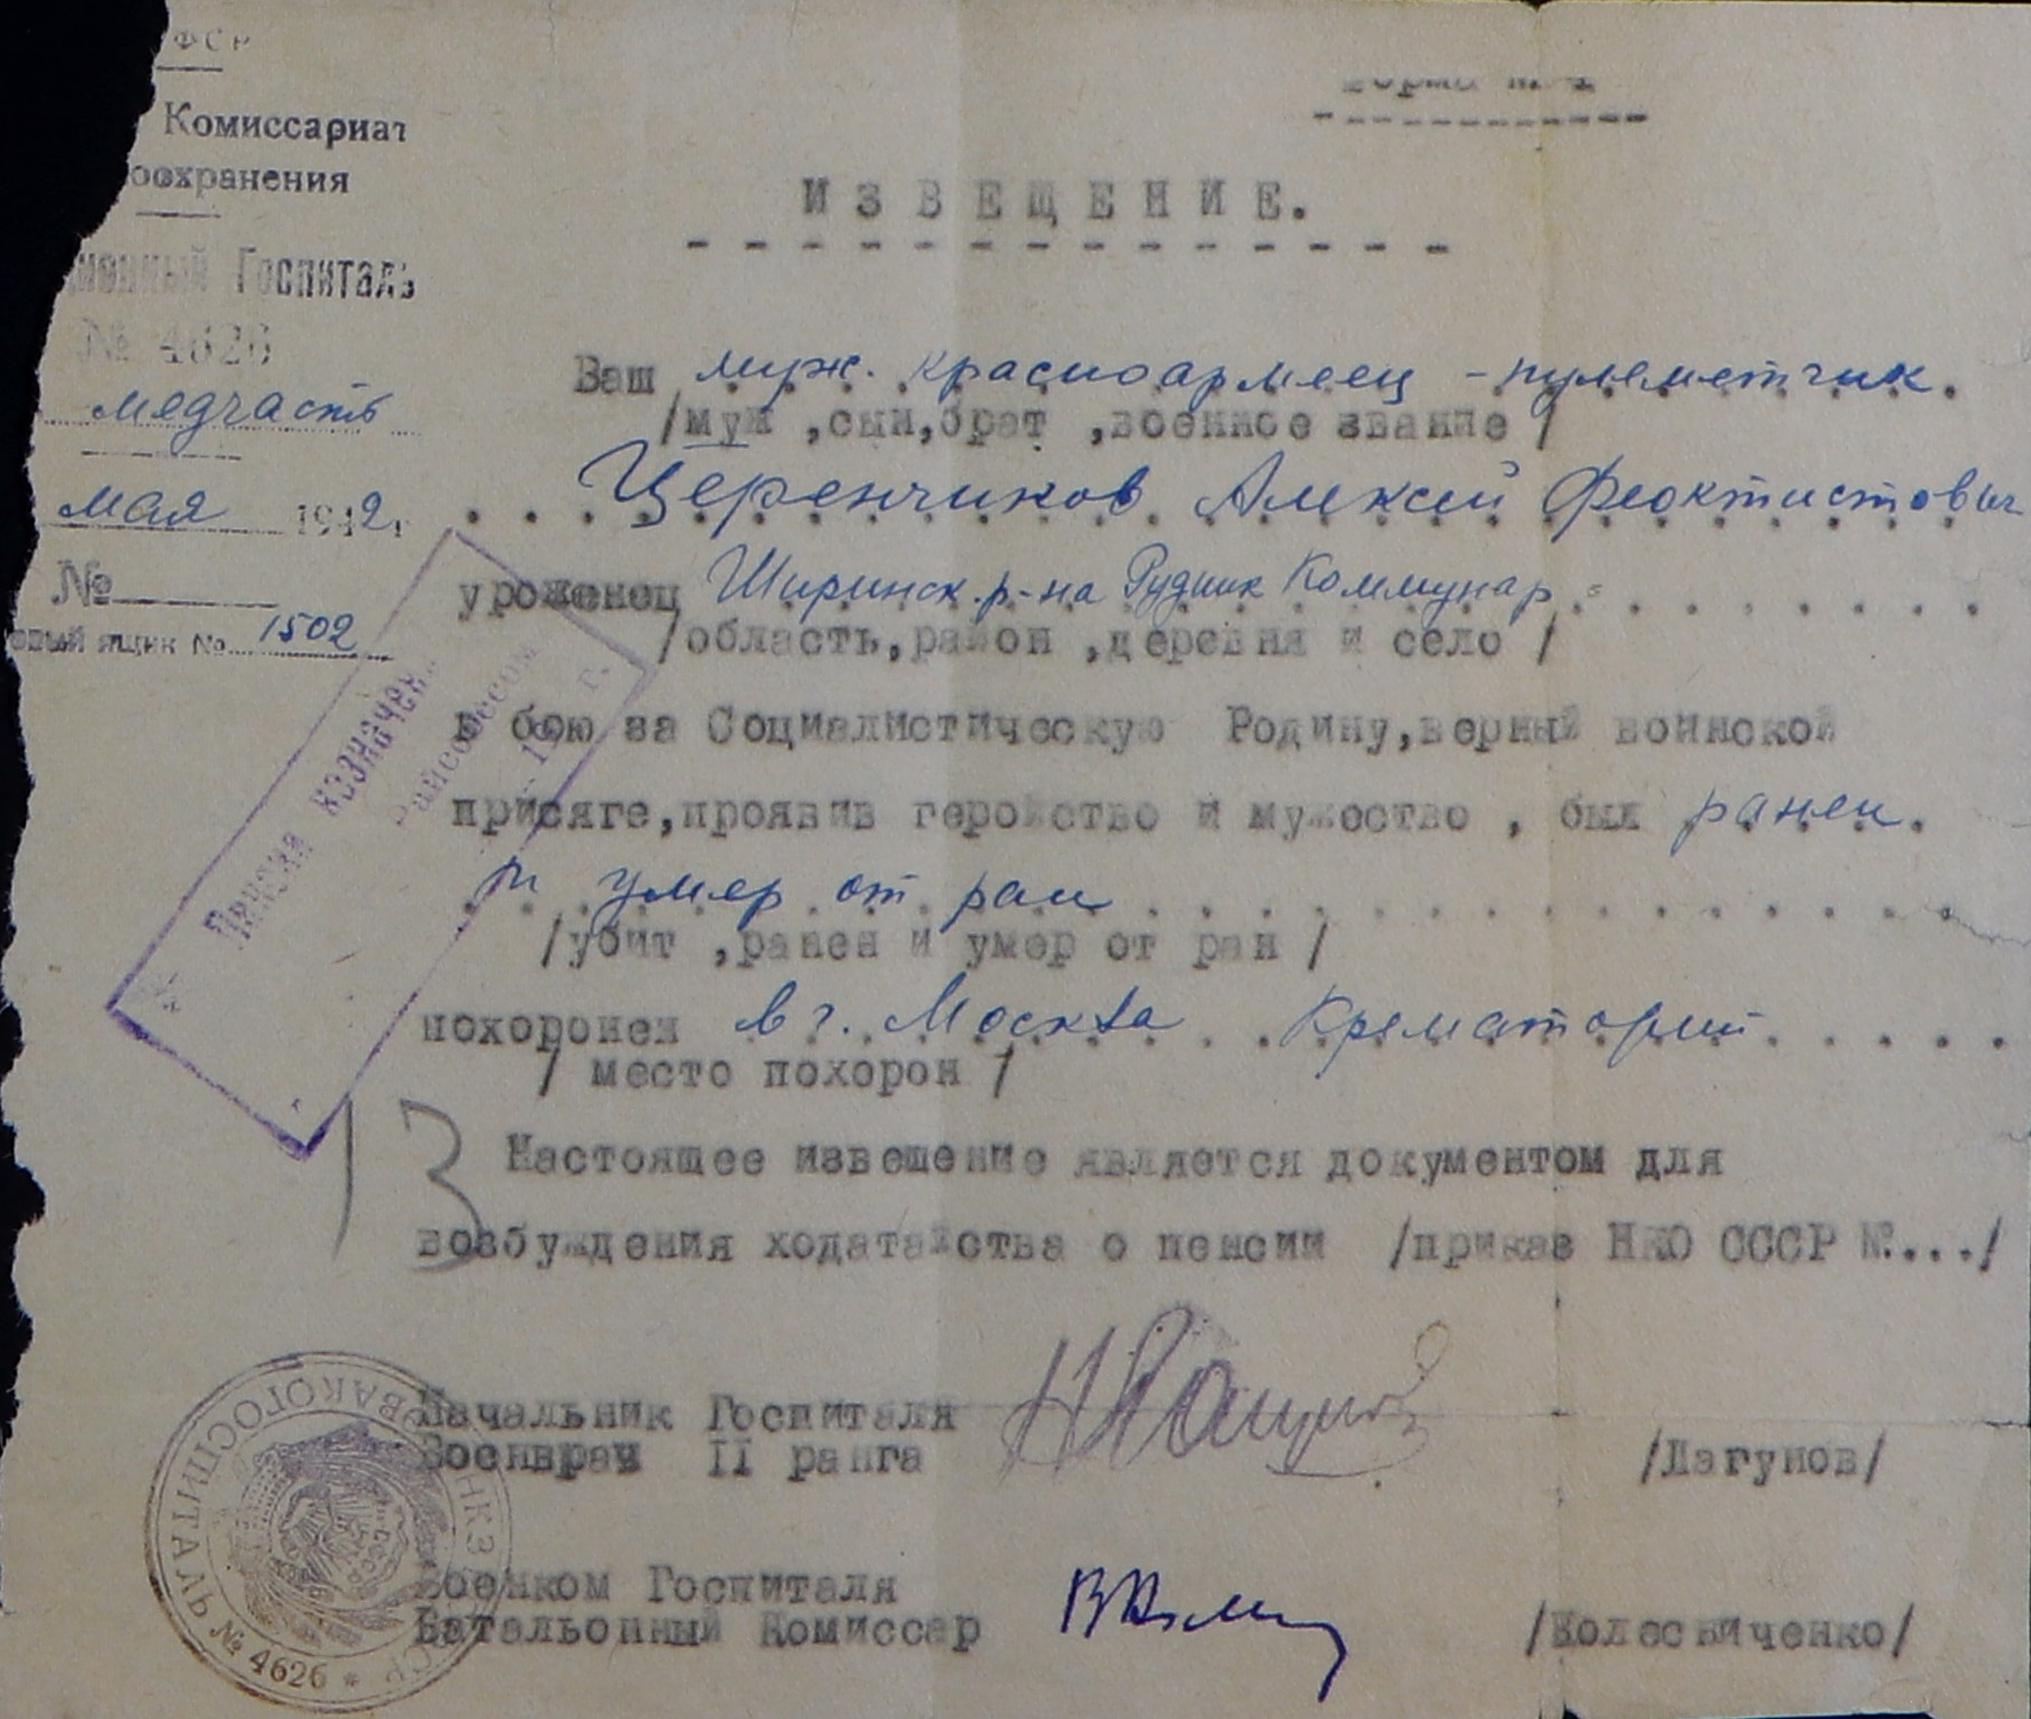 ФСР
Комиссариат
оохранения
ционный Госпиталь
№ 4626
медчасть
мая 1942 г
№
овый ящик № 1502
Форма № 4
ИЗВЕЩЕНИЕ.
Ваш муж. красноармеец - пулеметчик.
/муж ,сын,брат ,военное звание /
Церенчиков Алексей Феоктистович
уроженец Ширинск. р-на Рудник Коммунар
/область,район ,деревня и село /
в бою за Социалистическую Родину,верный воинской
присяге,проявив геройство и мужество , был ранен.
и умер от ран
/убит ,ранен и умер от ран /
похоронен в г. Москва Крематорий
/ место похорон /
13
Настоящее извещение является документом для
возбуждения ходатайства о пенсии /приказ НКО СССР №.../
Начальник Госпиталя
Военврач II ранга
/Лагунов/
Военком Госпиталя
Батальонный Комиссар
/Колесниченко/
Пенсия назначен
Райсобесом
19 г.
ЭВАКОГОСПИТАЛЬ № 4626 * НКЗ